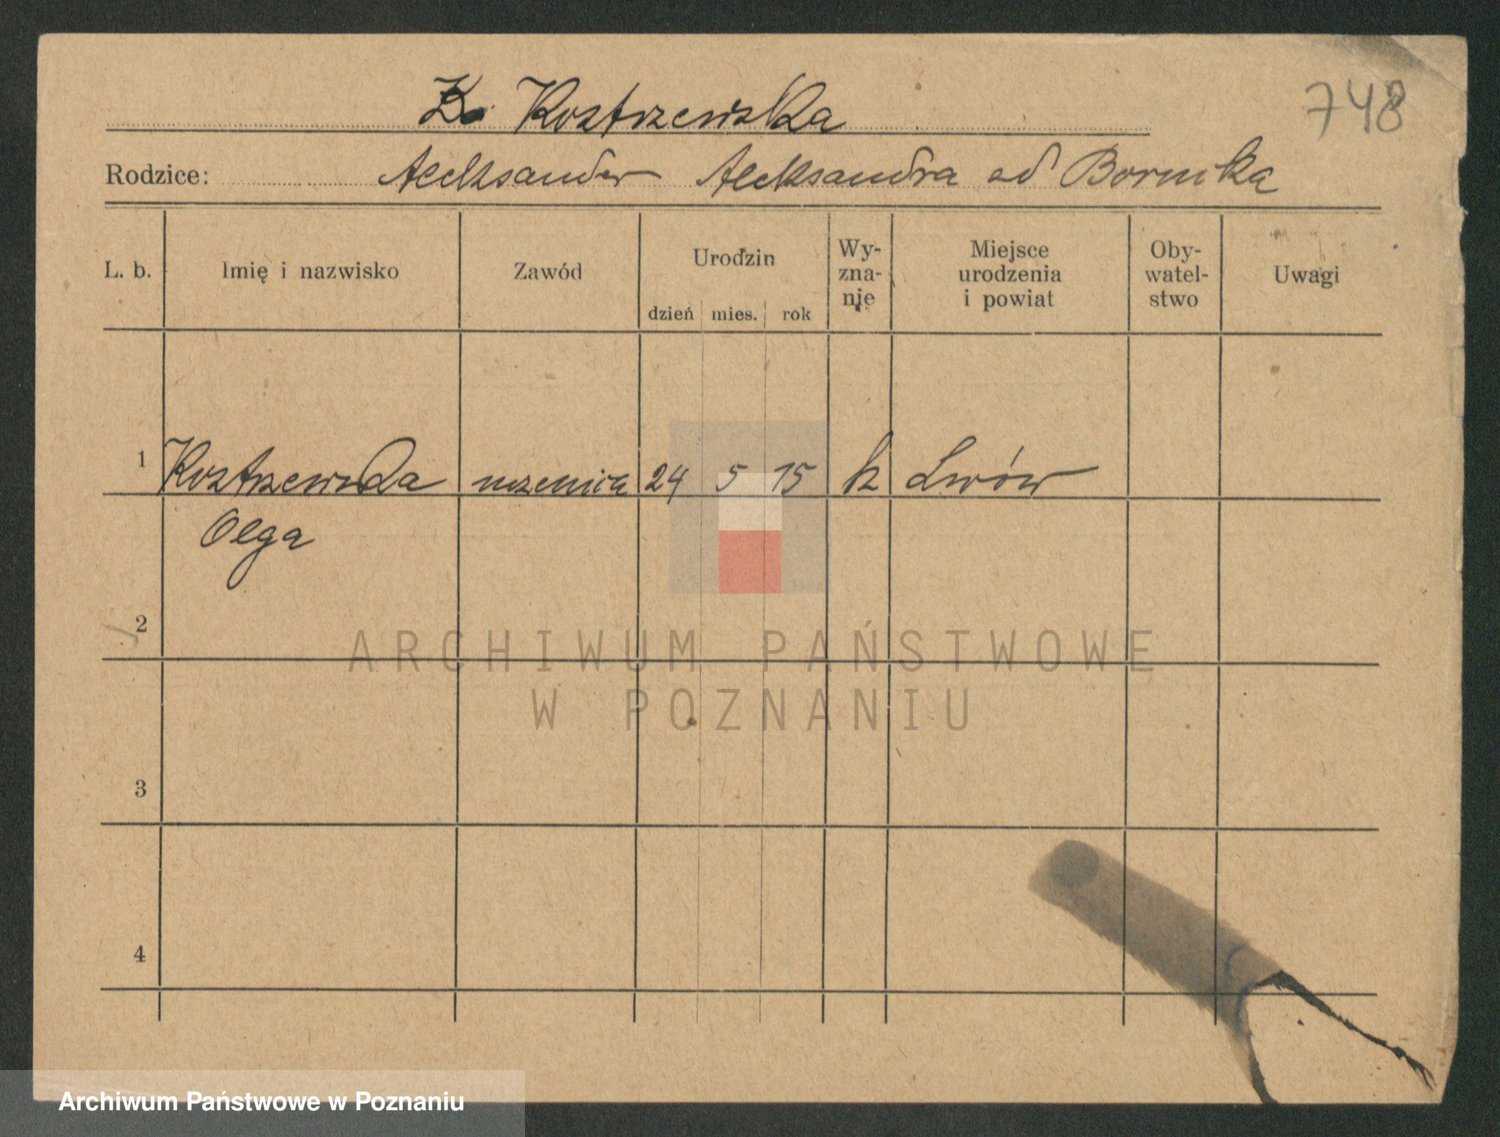 Kostrzewska
748
Rodzice: Aleksander Aleksandra od
L. b. Imię i nazwisko Zawód Urodzin dzień mies. rok Wy-zna-nie Miejsce urodzenia i powiat Oby-watel-stwo Uwagi
1 Kostrzewska uczenica 24 5 15 k Lwów
Olga
2
3
4
ARCHIWUM PAŃSTWOWE
W POZNANIU
Archiwum Państwowe w Poznaniu